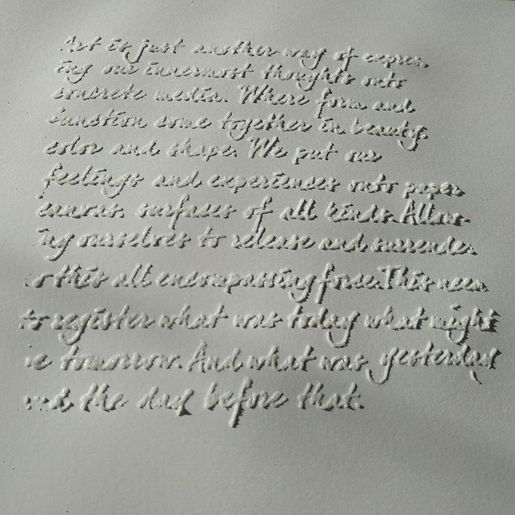 Art is just another way of copier
ing our innermost thoughts onto
concrete media. Where form and
function come together in beauty,
color and shape. We put our
feelings and experiences onto paper
canvas, surfaces of all kinds. Allow
ing ourselves to release and surrender
to this all encompassing force. This need
to register what was today what might
be tomorrow. And what was yesterday
and the day before that.